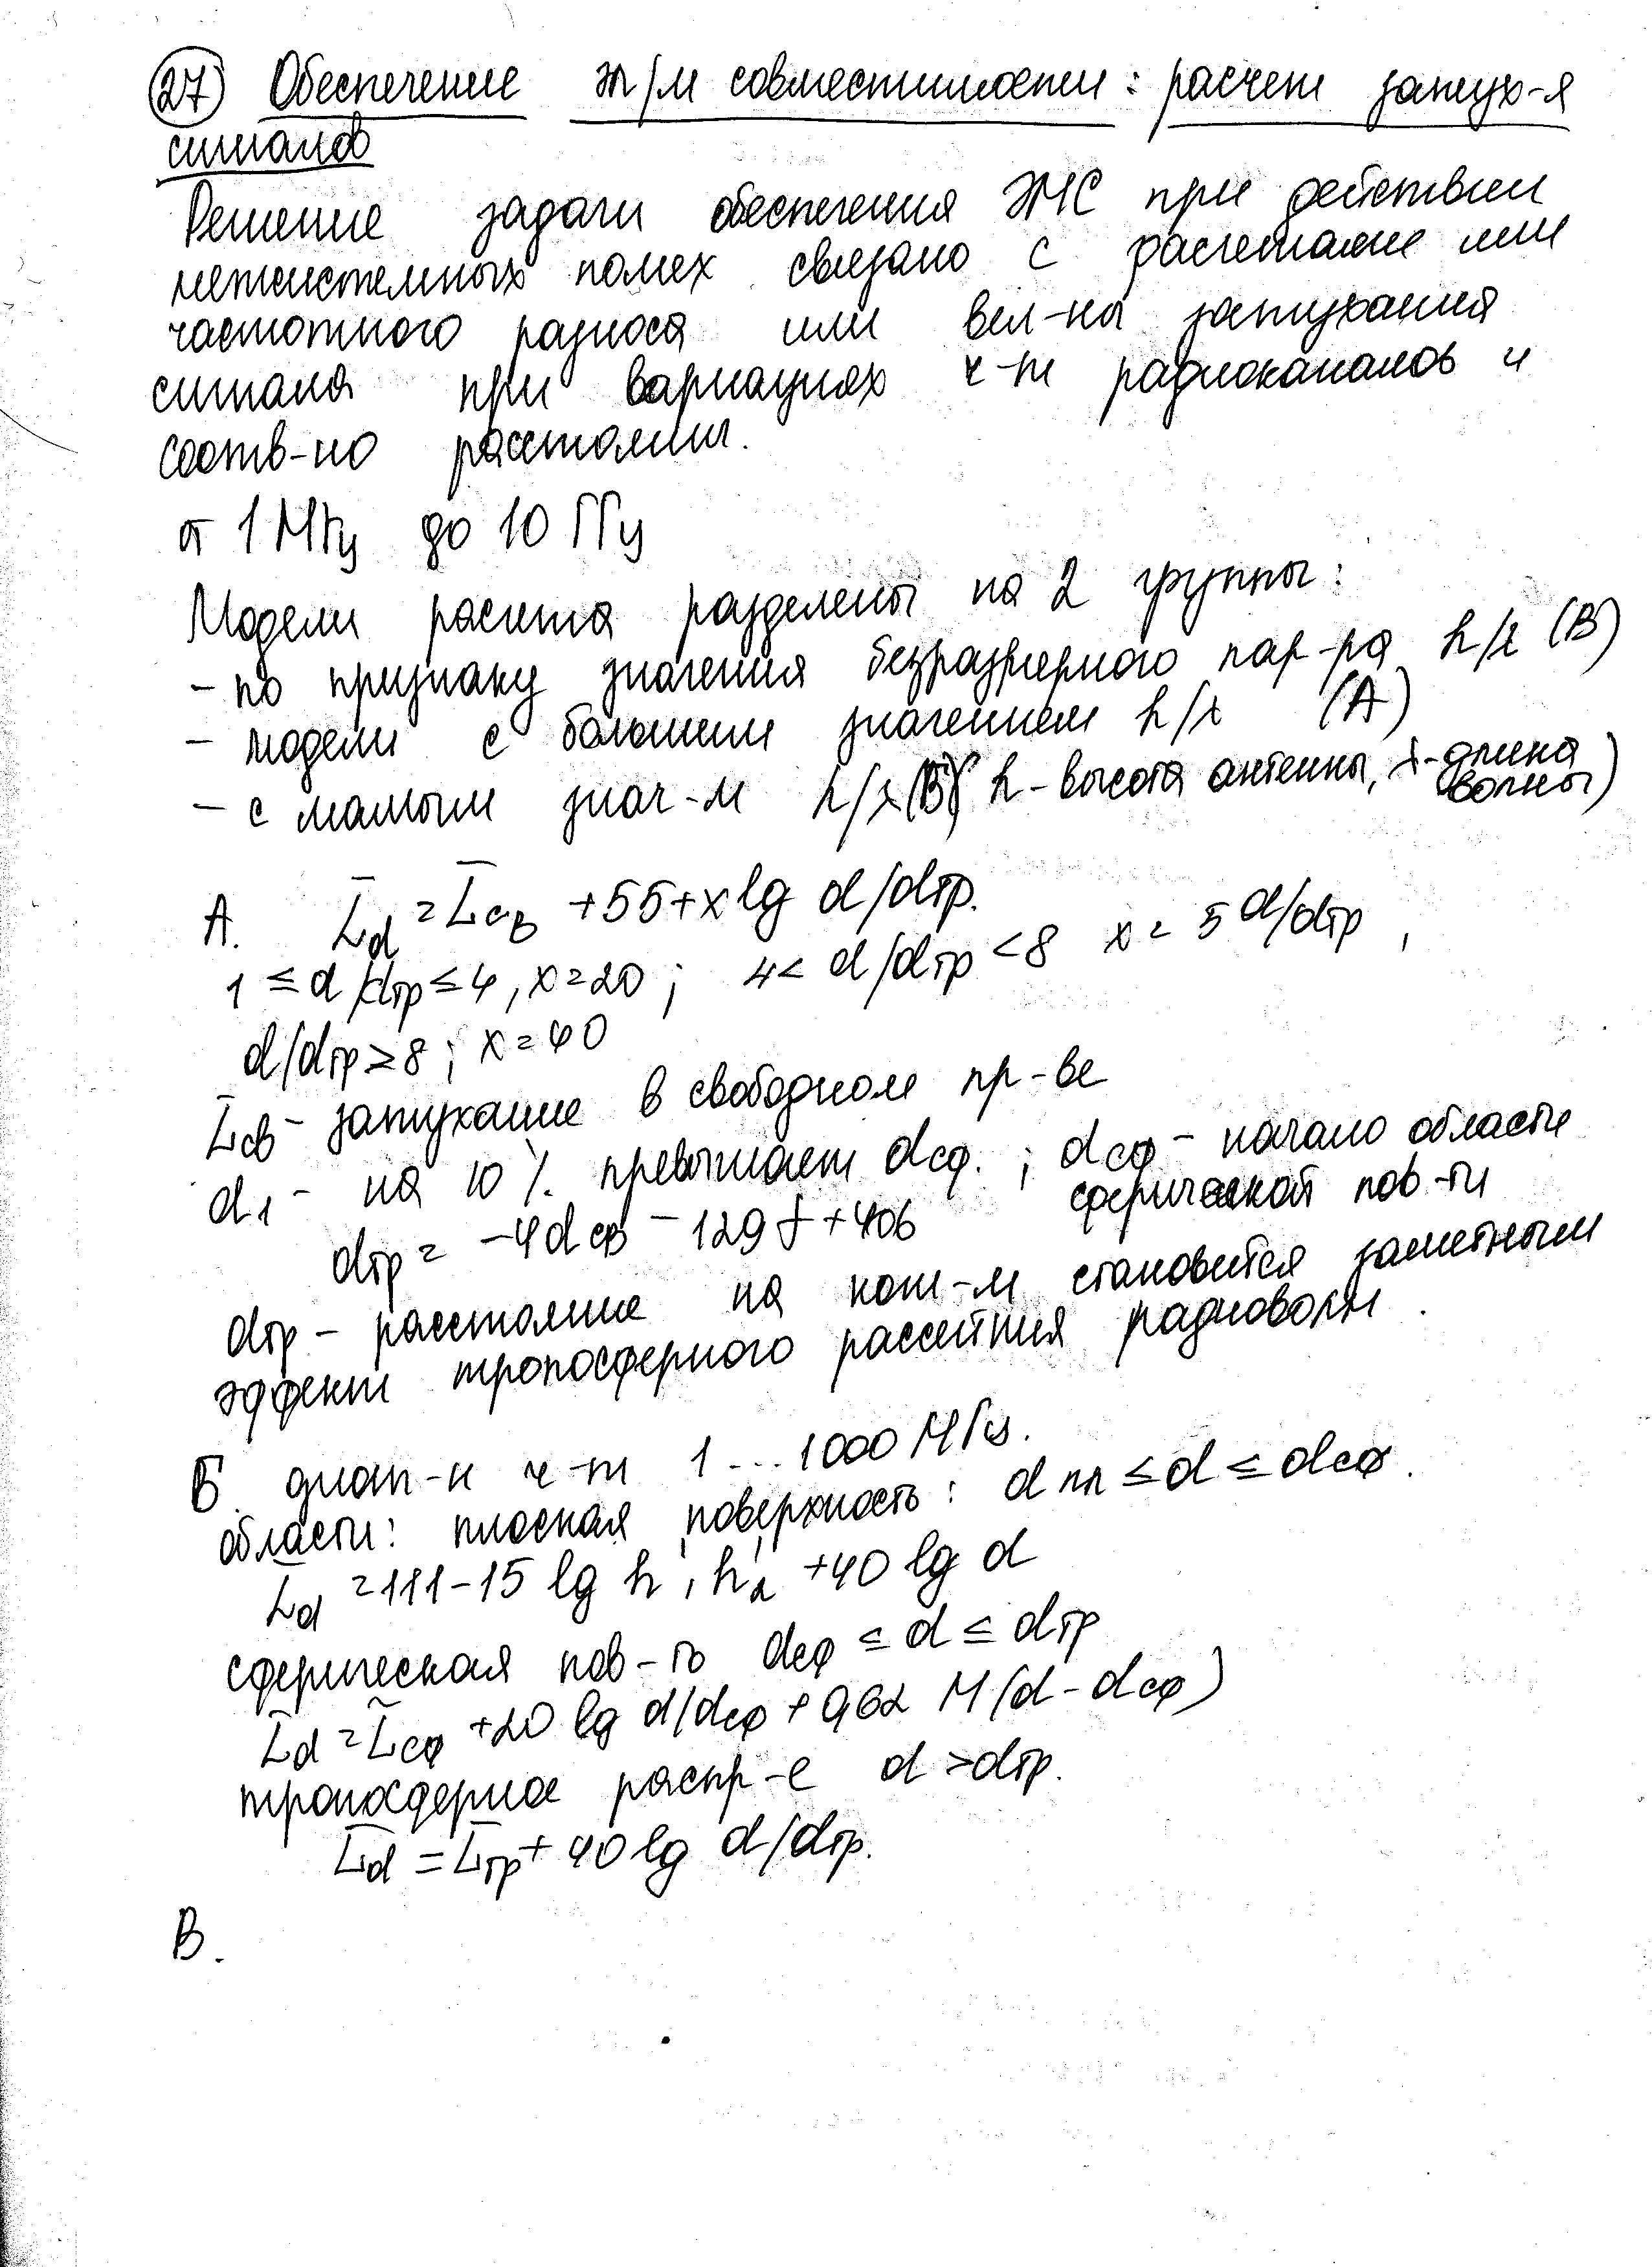 27) Обеспечение эл/м совместимости: расчет затух-я
сигналов
Решение задачи обеспечения ЭМС при действии
межсистемных помех связано с расчетами или
частотного разноса или вел-ны затухания
сигнала при вариациях ч-т радиоканалов и
соотв-но расстояния.
от 1 МГц до 10 ГГц
Модели расчета разделены на 2 группы:
- по признаку значения безразмерного пар-ра h/λ (В)
- модели с большим значением h/λ (А)
- с малым знач-м h/λ (Б) h - высота антенны, λ - длина
волны)
А. L̅d = L̅св + 55 + x lg d/dтр.
1 ≤ d/dтр ≤ 4, x = 20 ; 4 < d/dтр < 8 x = 5 d/dтр ,
d/dтр ≥ 8 ; x = 40
L̅св - затухание в свободном пр-ве
d1 - на 10 % превышает dсф. ; dсф - начало области
сферической пов-ти
dтр = -4dсф - 129 f + 406
dтр - расстояние на кот-м становится заметным
эффект тропосферного рассеяния радиоволн.
Б. диап-н ч-т 1 ... 1000 МГц.
области: плоская поверхность: d пл ≤ d ≤ dсф.
L̅d = 111 - 15 lg h1 h2 + 40 lg d
сферическая пов-ть dсф ≤ d ≤ dтр
L̅d = L̅сф + 20 lg d/dсф + 0,62 M (d - dсф)
тропосферное распр-е d > dтр.
L̅d = L̅тр + 40 lg d/dтр.
В.